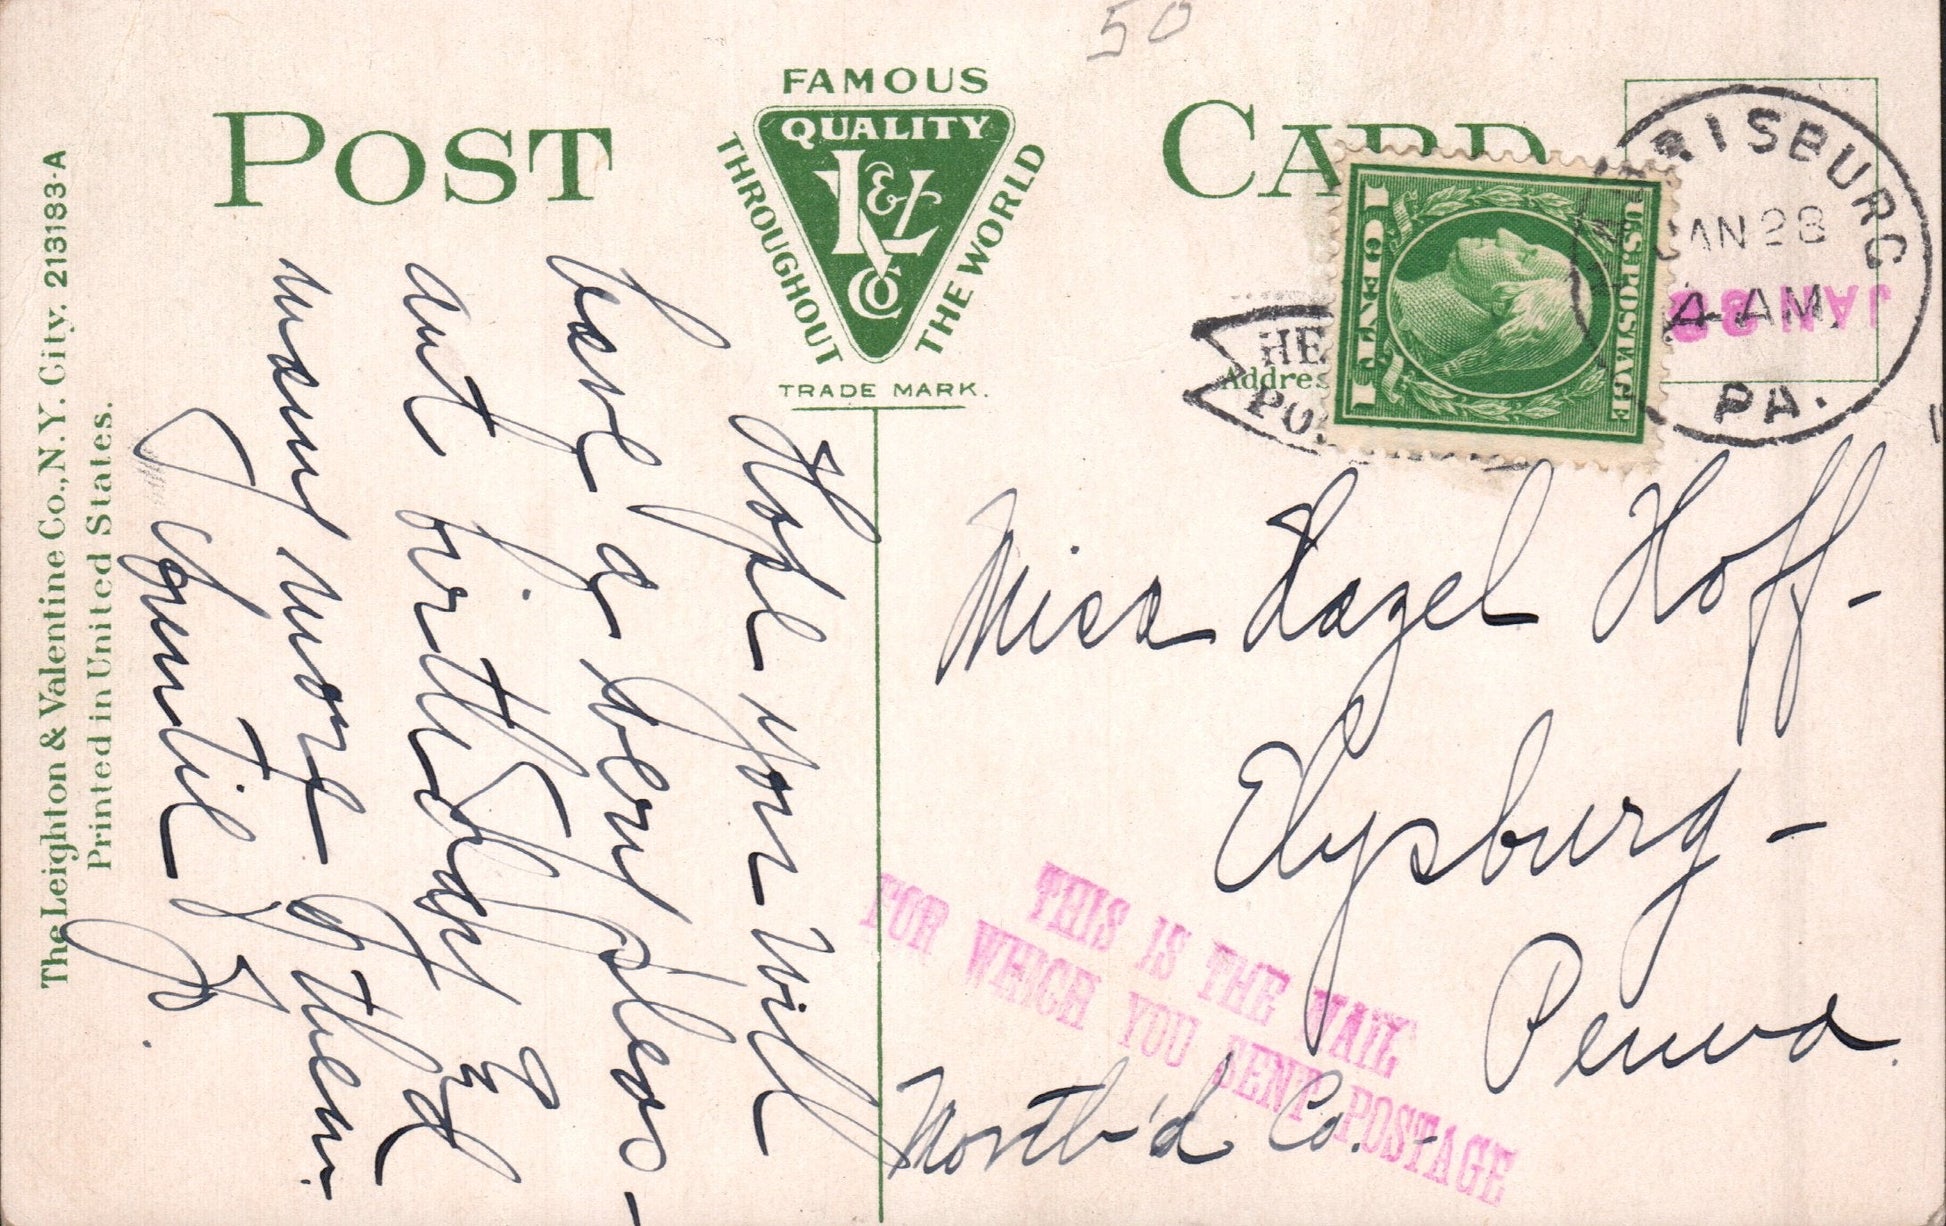 50
POST CARD
FAMOUS
QUALITY
K & L
Co
THROUGHOUT THE WORLD
TRADE MARK.
The Leighton & Valentine Co., N.Y. City. 213183-A
Printed in United States.
Hope you will
have a very pleas-
ant birthday and
many more of them.
ONE CENT 1
U.S. POSTAGE
RISBURG
JAN 28
4-AM
PA.
JAN
HE
Addres
PO
Miss Hazel Hoff-
Elysburg-
Penna.
North'd Co.-
THIS IS THE MAIL
FOR WHICH YOU SENT POSTAGE